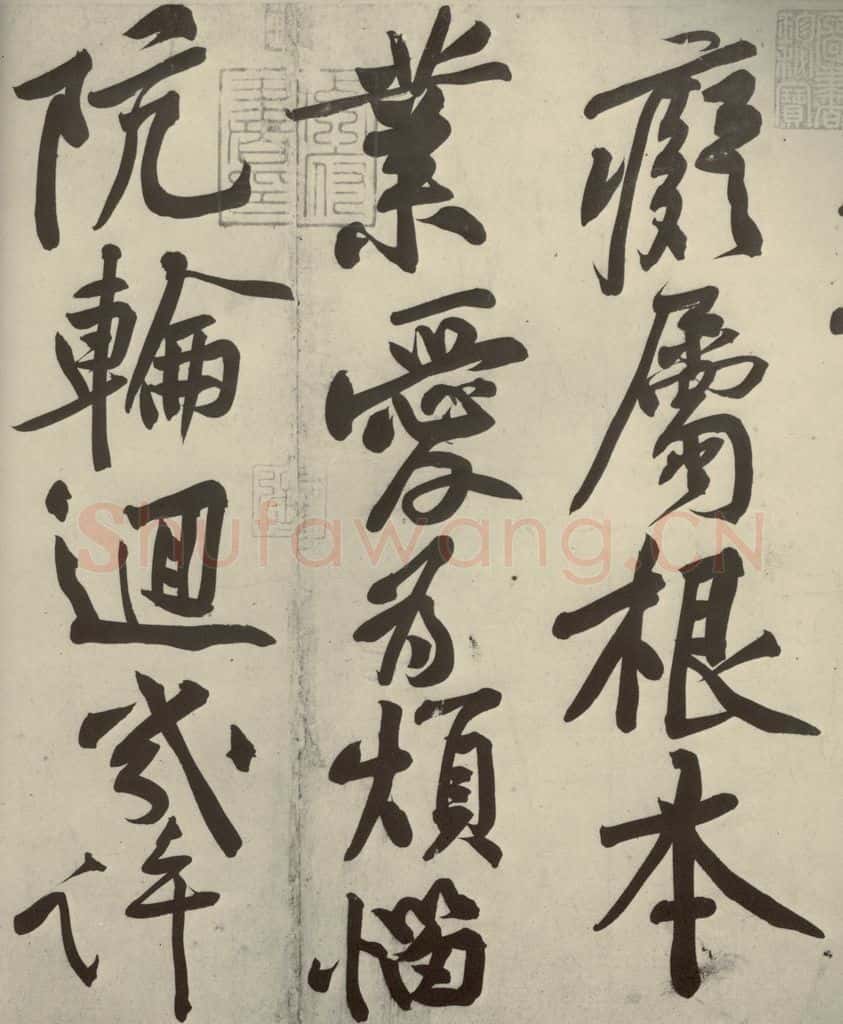 癡屬根本
業愛為煩惱
阬輪迴幾許
Shufawang.CN